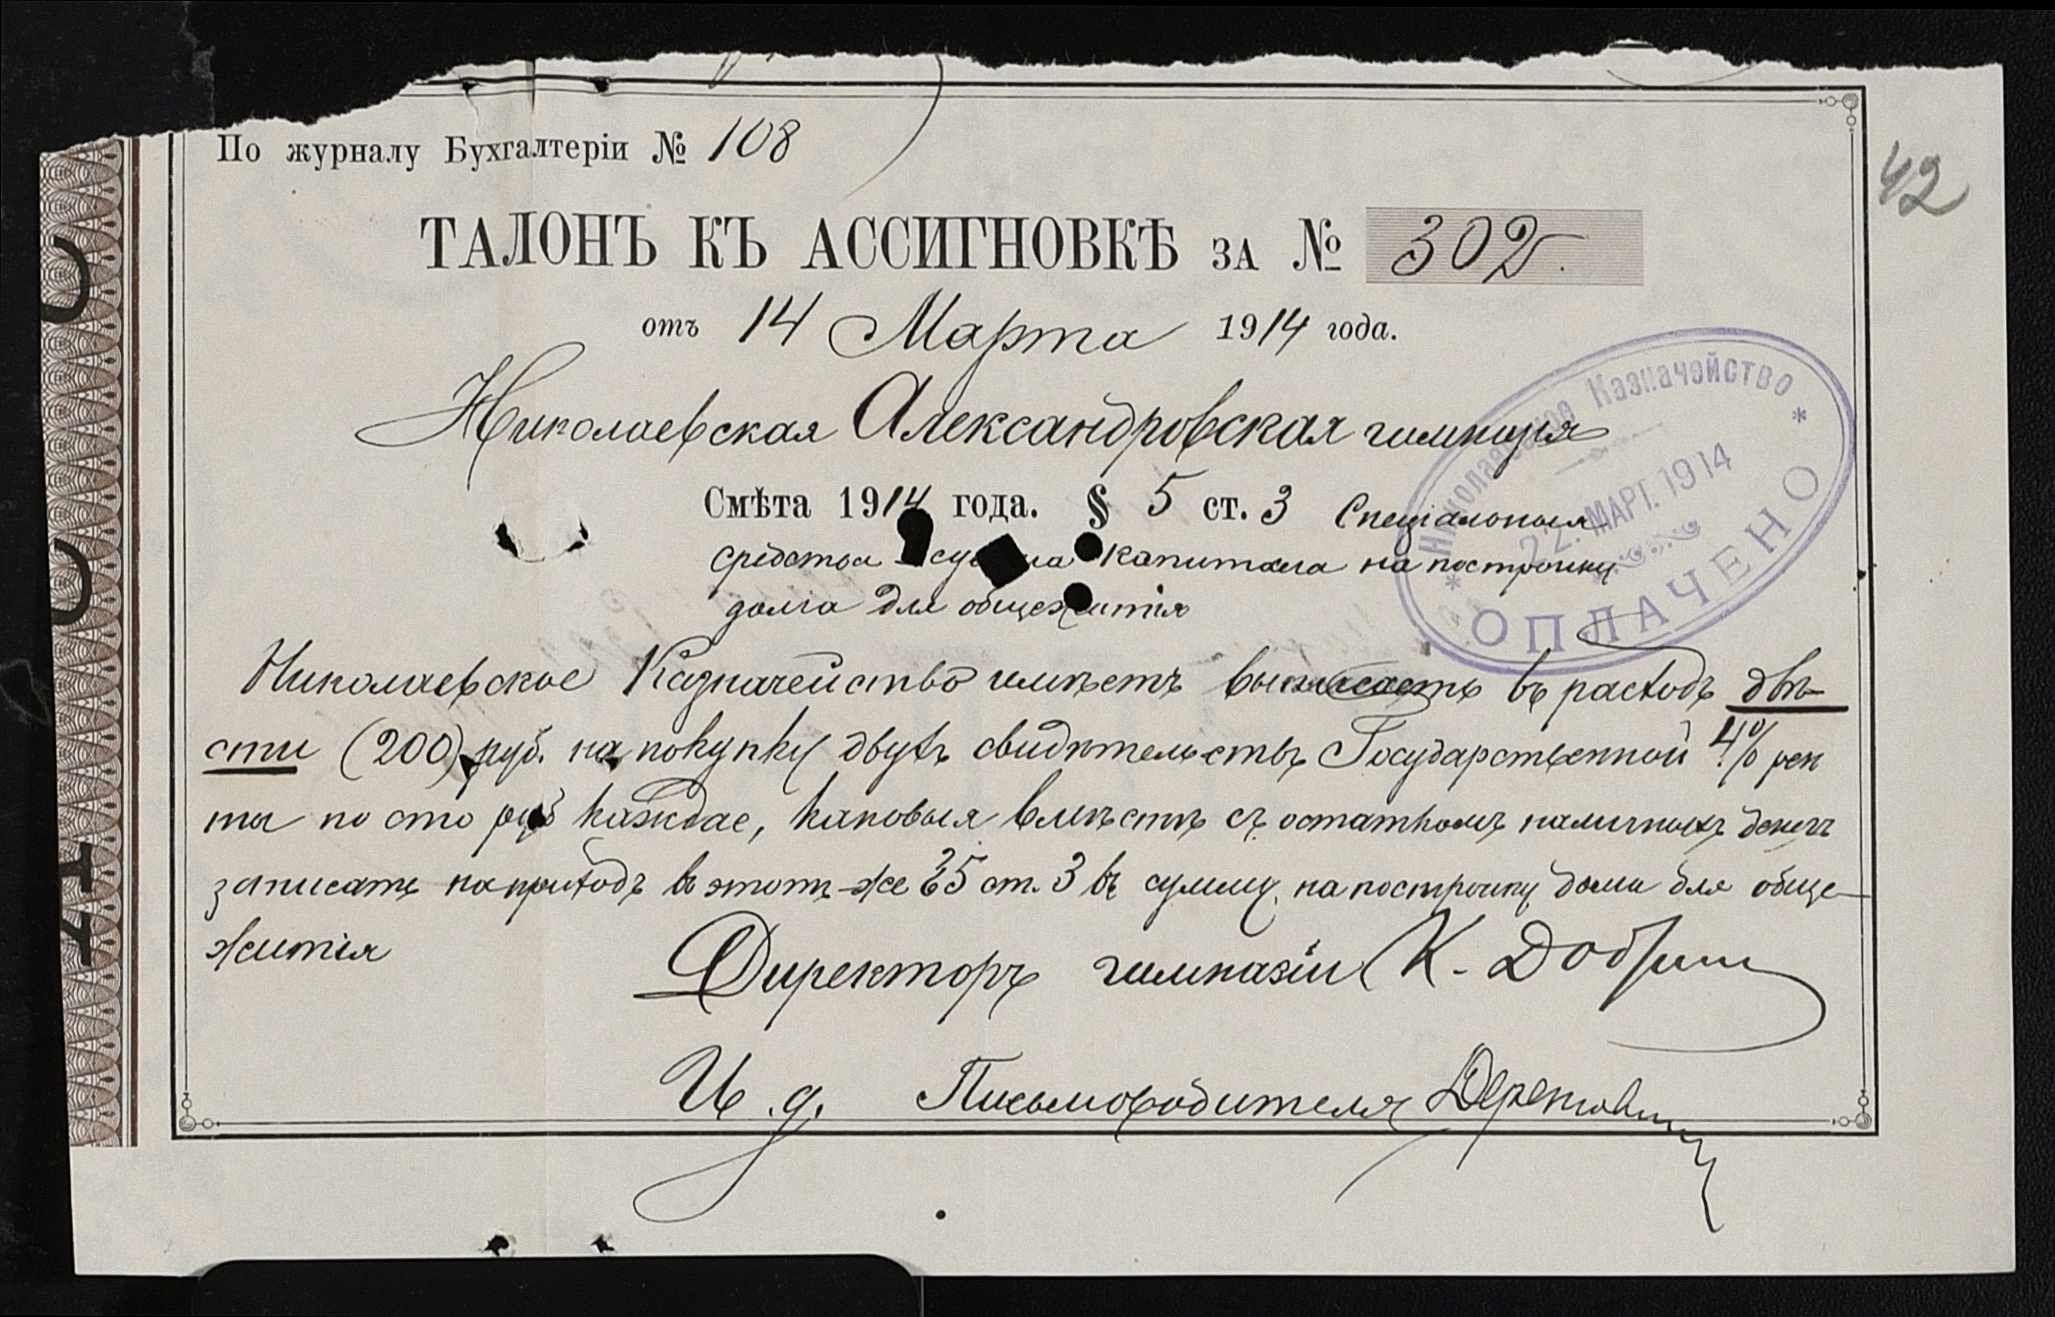 По журналу Бухгалтеріи № 108
42
ТАЛОНЪ КЪ АССИГНОВКѢ ЗА № 302.
отъ 14 Марта 1914 года.
Николаевская Александровская гимназія
Смѣта 1914 года. § 5 ст. 3 Спеціальныя
средства капитала на постройку
дома для общежитія
Николаевское Казначейство
22. МАРТ. 1914
ОПЛАЧЕНО
Николаевское Казначейство имѣетъ выписать въ расходъ двѣ-
сти (200) руб. на покупку двухъ свидѣтельствъ Государственной 4% рен
ты по сто руб каждое, каковыя вмѣстѣ съ остаткомъ наличныхъ денегъ
записать на приходъ въ этотъ-же § 5 ст. 3 въ сумму на постройку дома для обще-
житія
Директоръ гимназіи К.
И. д. Письмоводителя